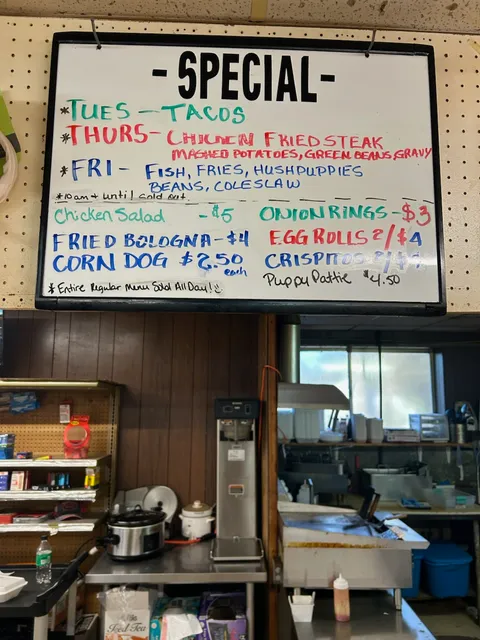 - SPECIAL -
*TUES - TACOS
*THURS - CHICKEN FRIED STEAK
MASHED POTATOES, GREEN BEANS, GRAVY
*FRI - FISH, FRIES, HUSHPUPPIES
BEANS, COLESLAW
*10am + until sold out
Chicken Salad - $5
FRIED BOLOGNA - $4
CORN DOG $2.50
each
* Entire Regular Menu Sold All Day!
ONION RINGS - $3
EGG ROLLS 2/$4
CRISPITOS 2/$4
Puppy Pattie $4.50
Iced Tea